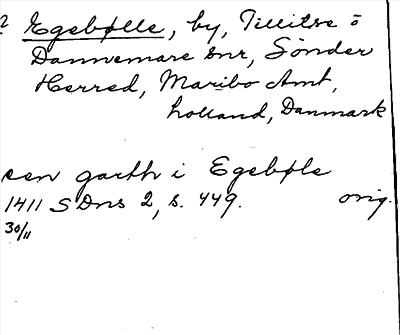 ? Egebølle, by, Tillitse o
Dannemare snr, Sønder
Herred, Maribo Amt,
Lolland, Danmark
een garth i Egebøle
1411 SDns 2, s. 449. orig.
30/11